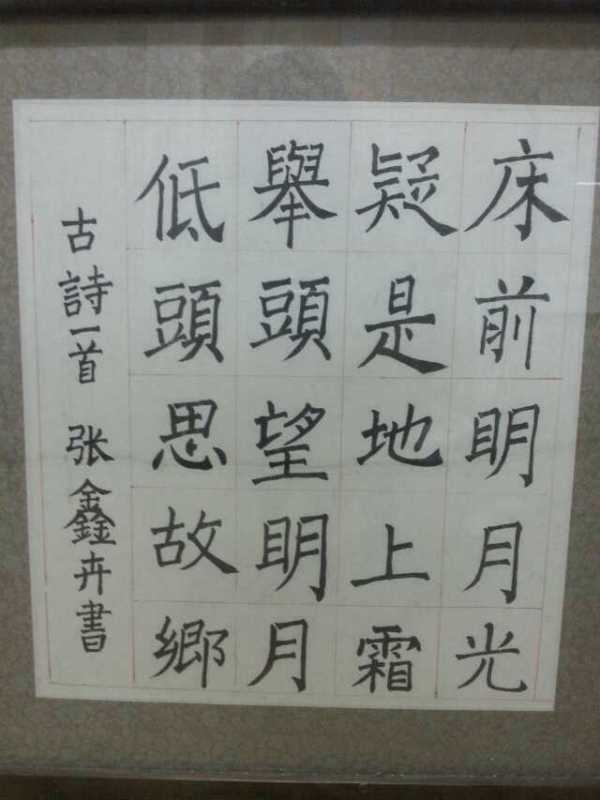 床前明月光
疑是地上霜
舉頭望明月
低頭思故鄉
古詩一首 张鑫卉書